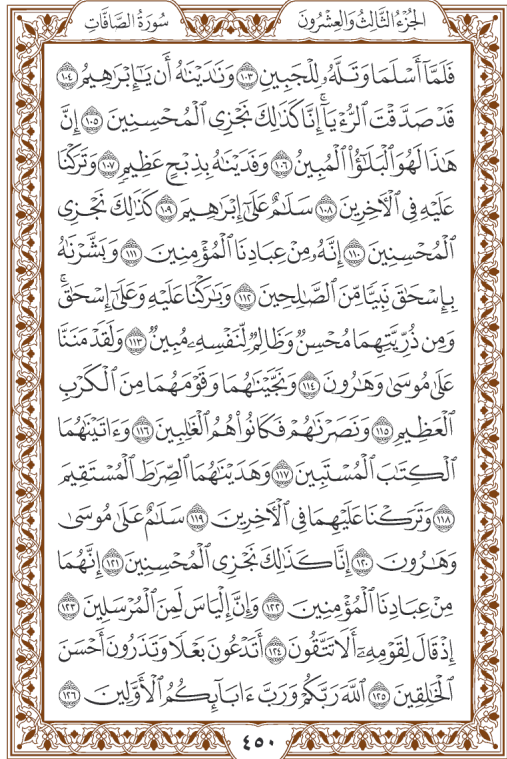 الجُزْءُ الثَّالِثُ وَالعِشْرُونَ سُورَةُ الصَّافَّاتِ
فَلَمَّآ أَسْلَمَا وَتَلَّهُۥ لِلْجَبِينِ ١٠٣ وَنَٰدَيْنَٰهُ أَن يَٰٓإِبْرَٰهِيمُ ١٠٤
قَدْ صَدَّقْتَ ٱلرُّءْيَآۚ إِنَّا كَذَٰلِكَ نَجْزِى ٱلْمُحْسِنِينَ ١٠٥ إِنَّ
هَٰذَا لَهُوَ ٱلْبَلَٰٓؤُا۟ ٱلْمُبِينُ ١٠٦ وَفَدَيْنَٰهُ بِذِبْحٍ عَظِيمٍ ١٠٧ وَتَرَكْنَا
عَلَيْهِ فِى ٱلْءَاخِرِينَ ١٠٨ سَلَٰمٌ عَلَىٰٓ إِبْرَٰهِيمَ ١٠٩ كَذَٰلِكَ نَجْزِى
ٱلْمُحْسِنِينَ ١١٠ إِنَّهُۥ مِنْ عِبَادِنَا ٱلْمُؤْمِنِينَ ١١١ وَبَشَّرْنَٰهُ
بِإِسْحَٰقَ نَبِيًّا مِّنَ ٱلصَّٰلِحِينَ ١١٢ وَبَٰرَكْنَا عَلَيْهِ وَعَلَىٰٓ إِسْحَٰقَۚ
وَمِن ذُرِّيَّتِهِمَا مُحْسِنٌ وَظَالِمٌ لِّنَفْسِهِۦ مُبِينٌ ١١٣ وَلَقَدْ مَنَنَّا
عَلَىٰ مُوسَىٰ وَهَٰرُونَ ١١٤ وَنَجَّيْنَٰهُمَا وَقَوْمَهُمَا مِنَ ٱلْكَرْبِ
ٱلْعَظِيمِ ١١٥ وَنَصَرْنَٰهُمْ فَكَانُوا۟ هُمُ ٱلْغَٰلِبِينَ ١١٦ وَءَاتَيْنَٰهُمَا
ٱلْكِتَٰبَ ٱلْمُسْتَبِينَ ١١٧ وَهَدَيْنَٰهُمَا ٱلصِّرَٰطَ ٱلْمُسْتَقِيمَ
١١٨ وَتَرَكْنَا عَلَيْهِمَا فِى ٱلْءَاخِرِينَ ١١٩ سَلَٰمٌ عَلَىٰ مُوسَىٰ
وَهَٰرُونَ ١٢٠ إِنَّا كَذَٰلِكَ نَجْزِى ٱلْمُحْسِنِينَ ١٢١ إِنَّهُمَا
مِنْ عِبَادِنَا ٱلْمُؤْمِنِينَ ١٢٢ وَإِنَّ إِلْيَاسَ لَمِنَ ٱلْمُرْسَلِينَ ١٢٣
إِذْ قَالَ لِقَوْمِهِۦٓ أَلَا تَتَّقُونَ ١٢٤ أَتَدْعُونَ بَعْلًا وَتَذَرُونَ أَحْسَنَ
ٱلْخَٰلِقِينَ ١٢٥ ٱللَّهَ رَبَّكُمْ وَرَبَّ ءَابَآئِكُمُ ٱلْأَوَّلِينَ ١٢٦
٤٥٠